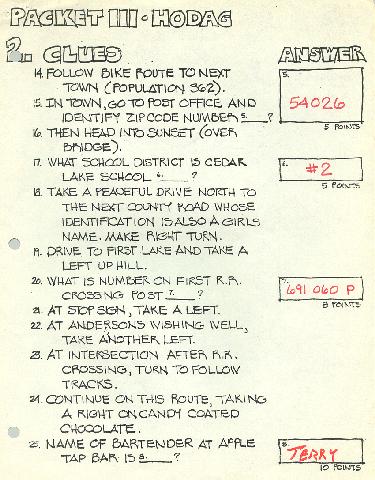 PACKET III · HODAG
2. CLUES
ANSWER
14. FOLLOW BIKE ROUTE TO NEXT
TOWN (POPULATION 362).
15. IN TOWN, GO TO POST OFFICE AND
IDENTIFY ZIP CODE NUMBER 5. ?
5.
54026
5 POINTS
16. THEN HEAD INTO SUNSET (OVER
BRIDGE).
17. WHAT SCHOOL DISTRICT IS CEDAR
LAKE SCHOOL 6. ?
6.
#2
5 POINTS
18. TAKE A PEACEFUL DRIVE NORTH TO
THE NEXT COUNTY ROAD WHOSE
IDENTIFICATION IS ALSO A GIRLS
NAME. MAKE RIGHT TURN.
19. DRIVE TO FIRST LAKE AND TAKE A
LEFT UP HILL.
20. WHAT IS NUMBER ON FIRST R.R.
CROSSING POST 7. ?
7.
691 060 P
8 POINTS
21. AT STOP SIGN, TAKE A LEFT.
22. AT ANDERSONS WISHING WELL,
TAKE ANOTHER LEFT.
23. AT INTERSECTION AFTER R.R.
CROSSING, TURN TO FOLLOW
TRACKS.
24. CONTINUE ON THIS ROUTE, TAKING
A RIGHT ON CANDY COATED
CHOCOLATE.
25. NAME OF BARTENDER AT APPLE
TAP BAR IS 8. ?
8.
TERRY
10 POINTS